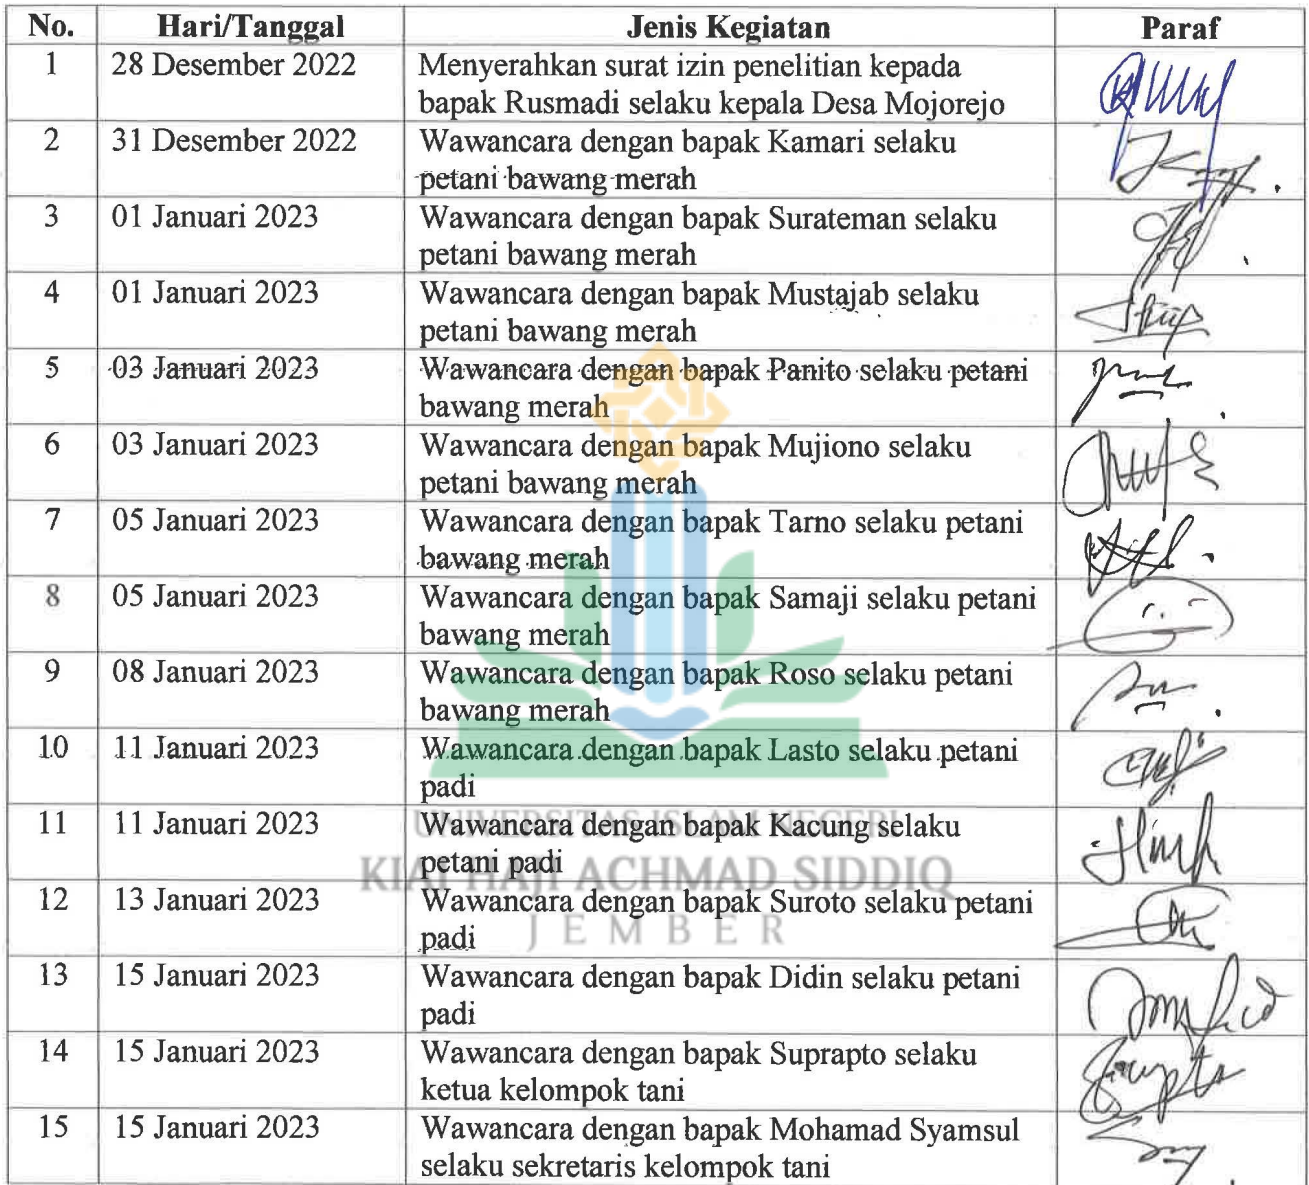 No. Hari/Tanggal Jenis Kegiatan Paraf
1 28 Desember 2022 Menyerahkan surat izin penelitian kepada
bapak Rusmadi selaku kepala Desa Mojorejo
2 31 Desember 2022 Wawancara dengan bapak Kamari selaku
petani bawang merah
3 01 Januari 2023 Wawancara dengan bapak Surateman selaku
petani bawang merah
4 01 Januari 2023 Wawancara dengan bapak Mustajab selaku
petani bawang merah
5 03 Januari 2023 Wawancara dengan bapak Panito selaku petani
bawang merah
6 03 Januari 2023 Wawancara dengan bapak Mujiono selaku
petani bawang merah
7 05 Januari 2023 Wawancara dengan bapak Tarno selaku petani
bawang merah
8 05 Januari 2023 Wawancara dengan bapak Samaji selaku petani
bawang merah
9 08 Januari 2023 Wawancara dengan bapak Roso selaku petani
bawang merah
10 11 Januari 2023 Wawancara dengan bapak Lasto selaku petani
padi
UNIVERSITAS ISLAM NEGERI
11 11 Januari 2023 Wawancara dengan bapak Kacung selaku
petani padi
KIAI HAJI ACHMAD SIDDIQ
12 13 Januari 2023 Wawancara dengan bapak Suroto selaku petani
padi
JEMBER
13 15 Januari 2023 Wawancara dengan bapak Didin selaku petani
padi
14 15 Januari 2023 Wawancara dengan bapak Suprapto selaku
ketua kelompok tani
15 15 Januari 2023 Wawancara dengan bapak Mohamad Syamsul
selaku sekretaris kelompok tani